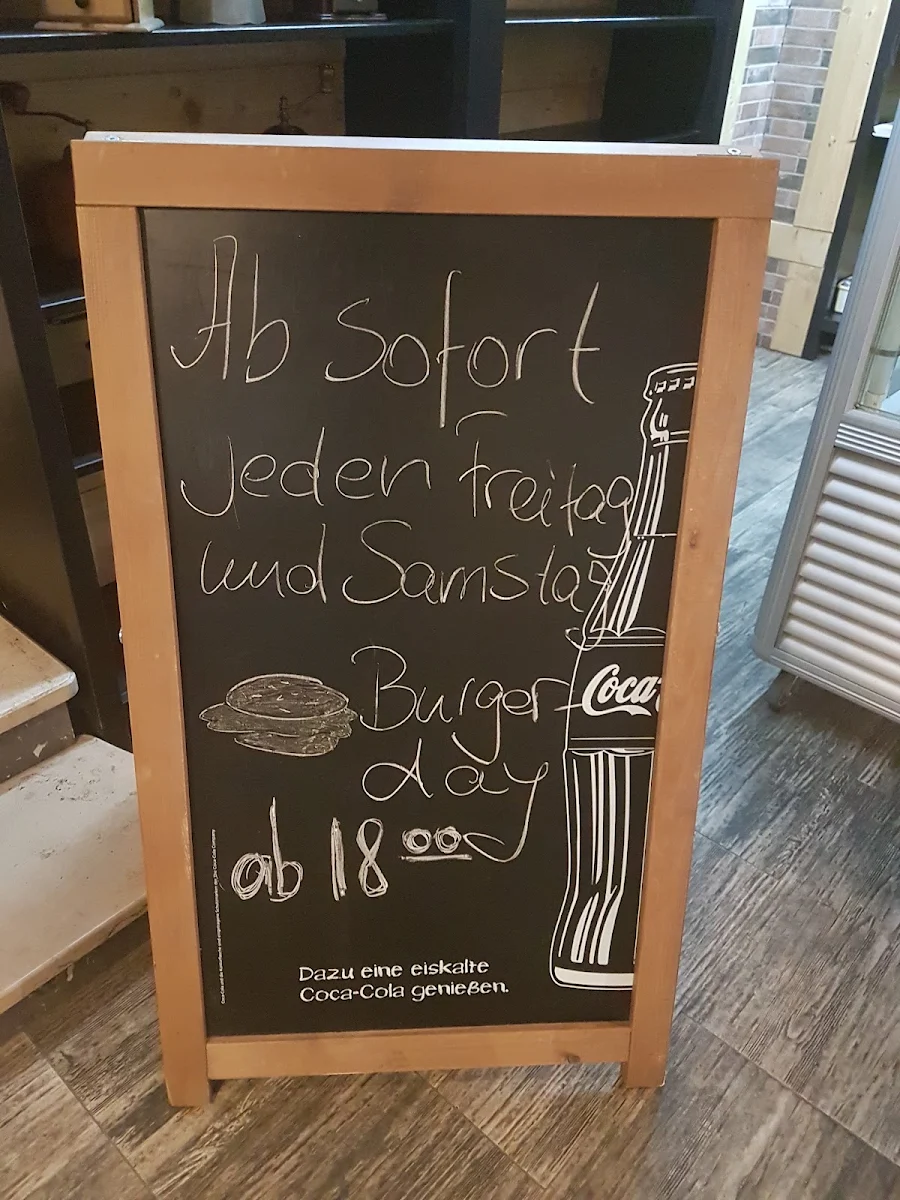 Ab Sofort
Jeden Freitag
und Samstag
Burger-
day
ab 18 00
Coca
Dazu eine eiskalte
Coca-Cola genießen.